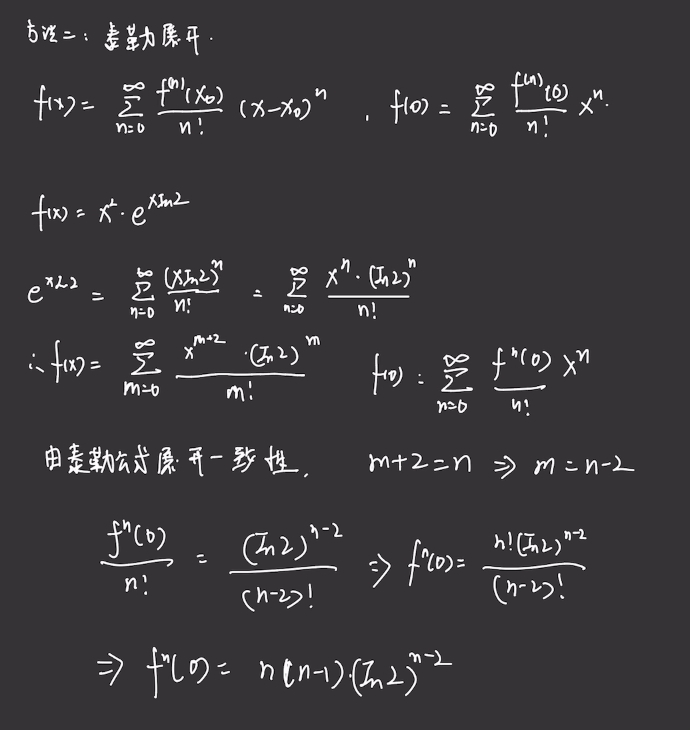 方法二：泰勒展开.
f(x) = ∑_{n=0}^{∞} \frac{f^{(n)}(x₀)}{n!} (x-x₀)^n , f(0) = ∑_{n=0}^{∞} \frac{f^{(n)}(0)}{n!} x^n.
f(x) = x²·e^{xln2}
e^{xln2} = ∑_{n=0}^{∞} \frac{(xln2)^n}{n!} = ∑_{n=0}^{∞} \frac{x^n·(ln2)^n}{n!}
∴ f(x) = ∑_{m=0}^{∞} \frac{x^{m+2}·(ln2)^m}{m!} f(0) = ∑_{n=0}^{∞} \frac{f^n(0)}{n!} x^n
由泰勒公式展开一致性, m+2=n ⇒ m=n-2
\frac{f^n(0)}{n!} = \frac{(ln2)^{n-2}}{(n-2)!} ⇒ f^n(0) = \frac{n!(ln2)^{n-2}}{(n-2)!}
⇒ f^n(0) = n(n-1)·(ln2)^{n-2}